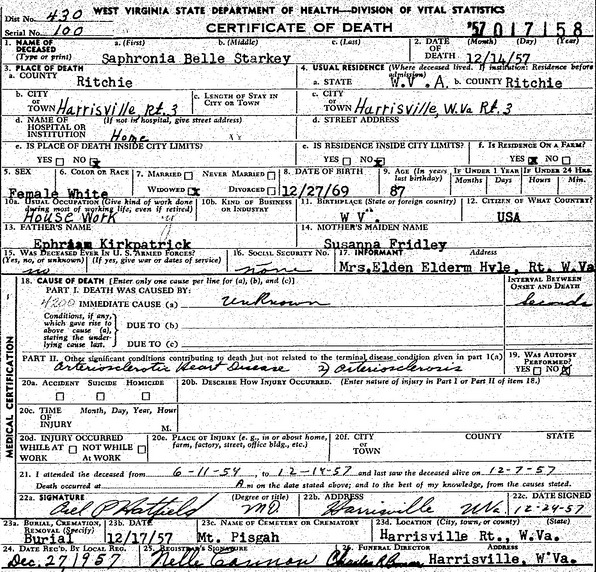 WEST VIRGINIA STATE DEPARTMENT OF HEALTH—DIVISION OF VITAL STATISTICS
Dist No. 430
Serial No. 100
CERTIFICATE OF DEATH
57 017158
1. NAME OF DECEASED (Type or print) a. (First) b. (Middle) c. (Last)
Saphronia Belle Starkey
2. DATE OF DEATH (Month) (Day) (Year)
12/14/57
3. PLACE OF DEATH
a. COUNTY
Ritchie
4. USUAL RESIDENCE (Where deceased lived. If institution: Residence before admission)
a. STATE W.V.A. b. COUNTY Ritchie
b. CITY OR TOWN Harrisville Rt. 3
c. LENGTH OF STAY IN CITY OR TOWN
c. CITY OR TOWN Harrisville, W.Va Rt. 3
d. NAME OF HOSPITAL OR INSTITUTION (If not in hospital, give street address)
Home
d. STREET ADDRESS
e. IS PLACE OF DEATH INSIDE CITY LIMITS?
YES NO x
e. IS RESIDENCE INSIDE CITY LIMITS?
YES NO x
f. IS RESIDENCE ON A FARM?
YES x NO
5. SEX
Female
6. COLOR OR RACE
White
7. MARRIED NEVER MARRIED
WIDOWED x DIVORCED
8. DATE OF BIRTH
12/27/69
9. AGE (In years last birthday)
87
IF UNDER 1 YEAR
Months Days
IF UNDER 24 HRS.
Hours Min.
10a. USUAL OCCUPATION (Give kind of work done during most of working life, even if retired)
House Work
10b. KIND OF BUSINESS OR INDUSTRY
11. BIRTHPLACE (State or foreign country)
W V.
12. CITIZEN OF WHAT COUNTRY?
USA
13. FATHER'S NAME
Ephriam Kirkpatrick
14. MOTHER'S MAIDEN NAME
Susanna Fridley
15. WAS DECEASED EVER IN U. S. ARMED FORCES?
(Yes, no, or unknown) (If yes, give war or dates of service)
no
16. SOCIAL SECURITY NO.
none
17. INFORMANT Address
Mrs.Elden Elderm Hyle, Rt. W.Va
MEDICAL CERTIFICATION
18. CAUSE OF DEATH [Enter only one cause per line for (a), (b), and (c)]
PART I. DEATH WAS CAUSED BY:
4200 IMMEDIATE CAUSE (a) Unknown
INTERVAL BETWEEN ONSET AND DEATH
Seconds
Conditions, if any, which gave rise to above cause (a), stating the underlying cause last.
DUE TO (b)
DUE TO (c)
PART II. Other significant conditions contributing to death but not related to the terminal disease condition given in part 1(a)
Arteriosclerotic Heart Disease 2) Arteriosclerosis
19. WAS AUTOPSY PERFORMED?
YES NO x
20a. ACCIDENT SUICIDE HOMICIDE
20b. DESCRIBE HOW INJURY OCCURRED. (Enter nature of injury in Part I or Part II of item 18.)
20c. TIME OF INJURY Month, Day, Year, Hour
M.
20d. INJURY OCCURRED
WHILE AT WORK NOT WHILE AT WORK
20e. PLACE OF INJURY (e. g., in or about home, farm, factory, street, office bldg., etc.)
20f. CITY OR TOWN COUNTY STATE
21. I attended the deceased from 6-11-54, to 12-14-57 and last saw the deceased alive on 12-7-57
Death occurred at A m on the date stated above; and to the best of my knowledge, from the causes stated.
22a. SIGNATURE (Degree or title)
P Hatfield MD
22b. ADDRESS
Harrisville W.Va.
22c. DATE SIGNED
12-24-57
23a. BURIAL, CREMATION, REMOVAL (Specify)
Burial
23b. DATE
12/17/57
23c. NAME OF CEMETERY OR CREMATORY
Mt. Pisgah
23d. LOCATION (City, town, or county) (State)
Harrisville Rt., W.Va.
24. DATE REC'D. BY LOCAL REG.
Dec. 27, 1957
25. REGISTRAR'S SIGNATURE
Nelle Cannon
26. FUNERAL DIRECTOR ADDRESS
Charles R. Harrisville, W.Va.